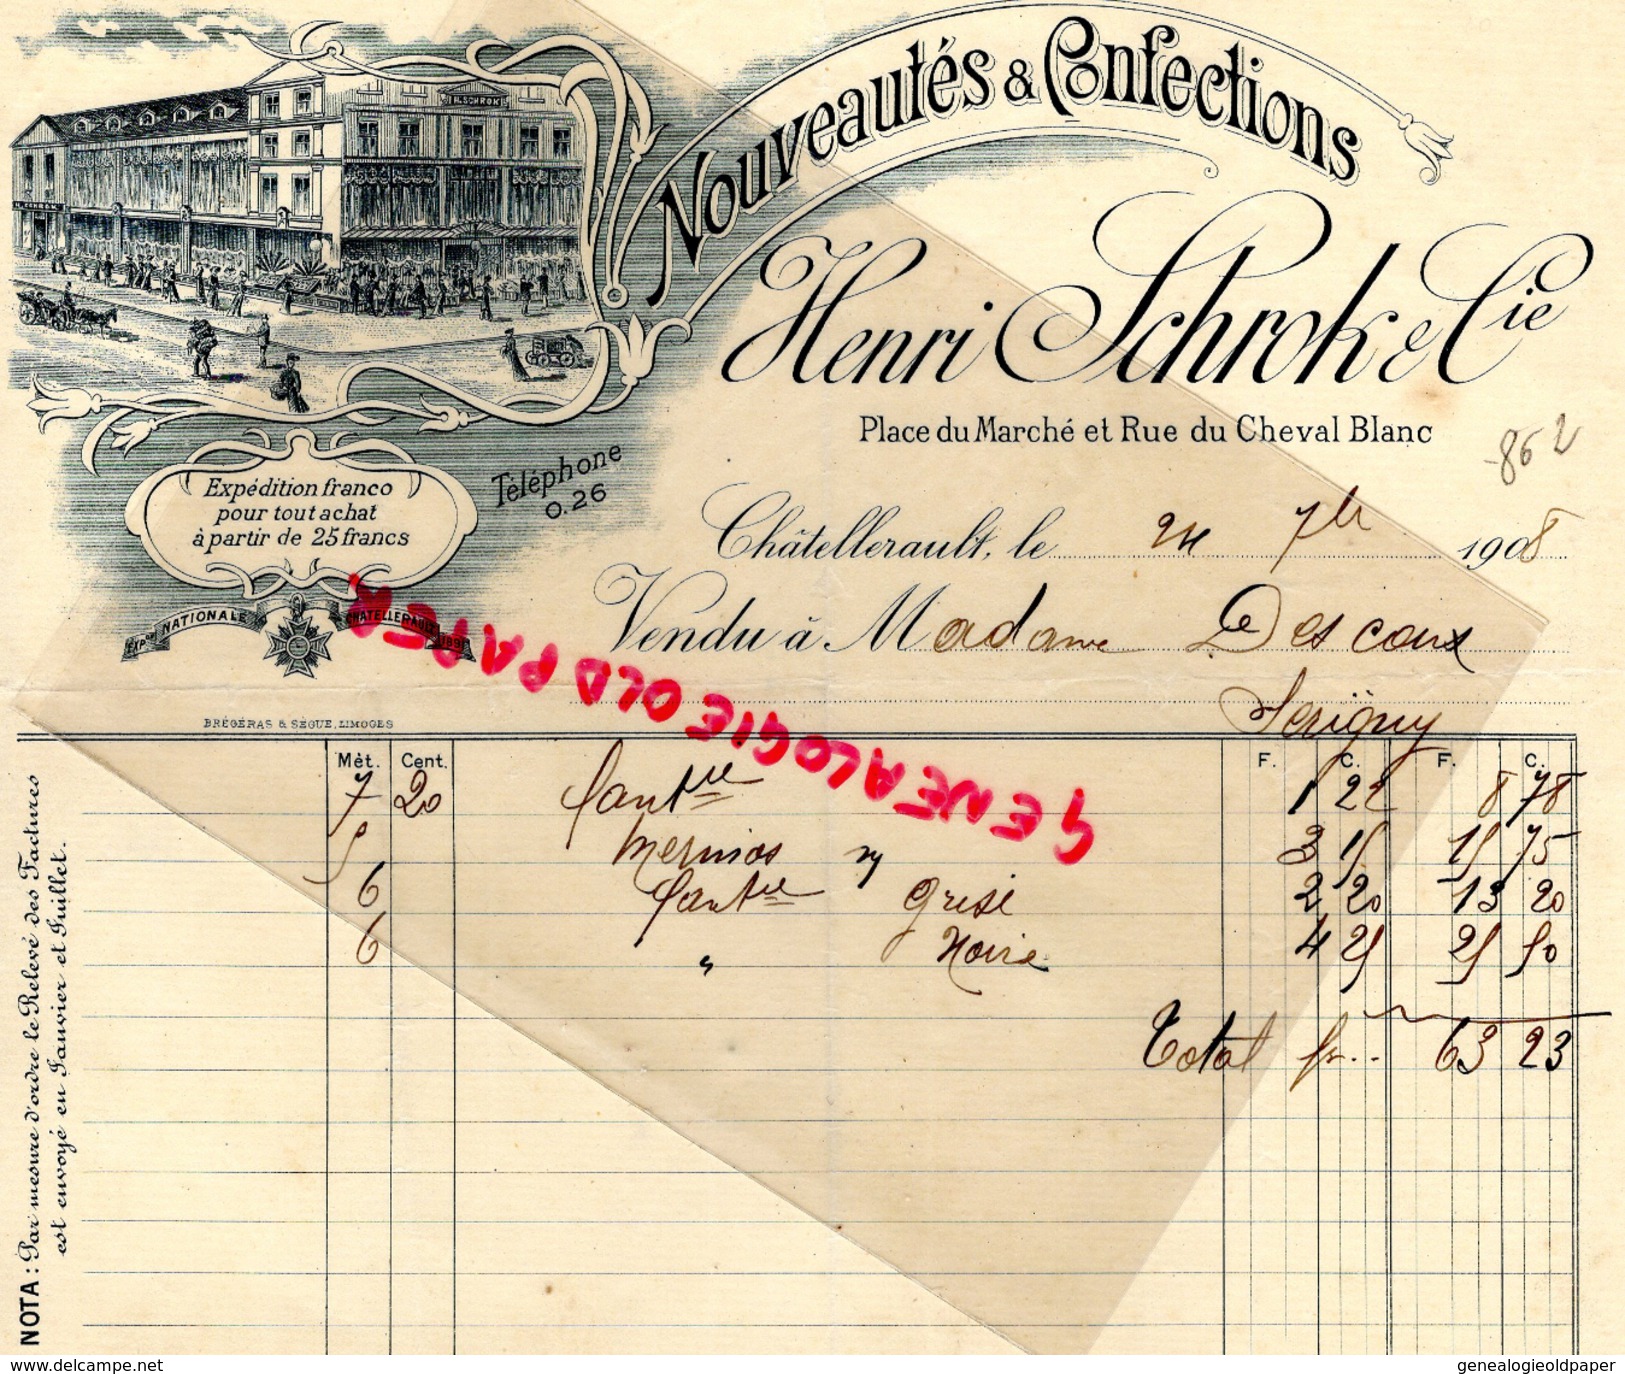 H. SCHROK
H. SCHROK
Nouveautés & Confections
Henri Schrok & Cie
Place du Marché et Rue du Cheval Blanc
862
Expédition franco
pour tout achat
à partir de 25 francs
Téléphone
0.26
Châtellerault, le 24 7bre 1908
EXPon NATIONALE CHATELLERAULT 1891
Vendu à Madame Descoux
Serigny
BRÉGÉRAS & SÈGUE, LIMOGES
GENEALOGIE OLD PAPER
Mèt. Cent. F. C. F. C.
7 20 1 22 8 78
5 Merinos 3 15 15 75
6 grise 2 20 13 20
6 " Noire 4 25 25 50
Total fr.. 63 23
NOTA : Par mesure d'ordre le Relevé des Factures
est envoyé en Janvier et Juillet.
www.delcampe.net
genealogieoldpaper